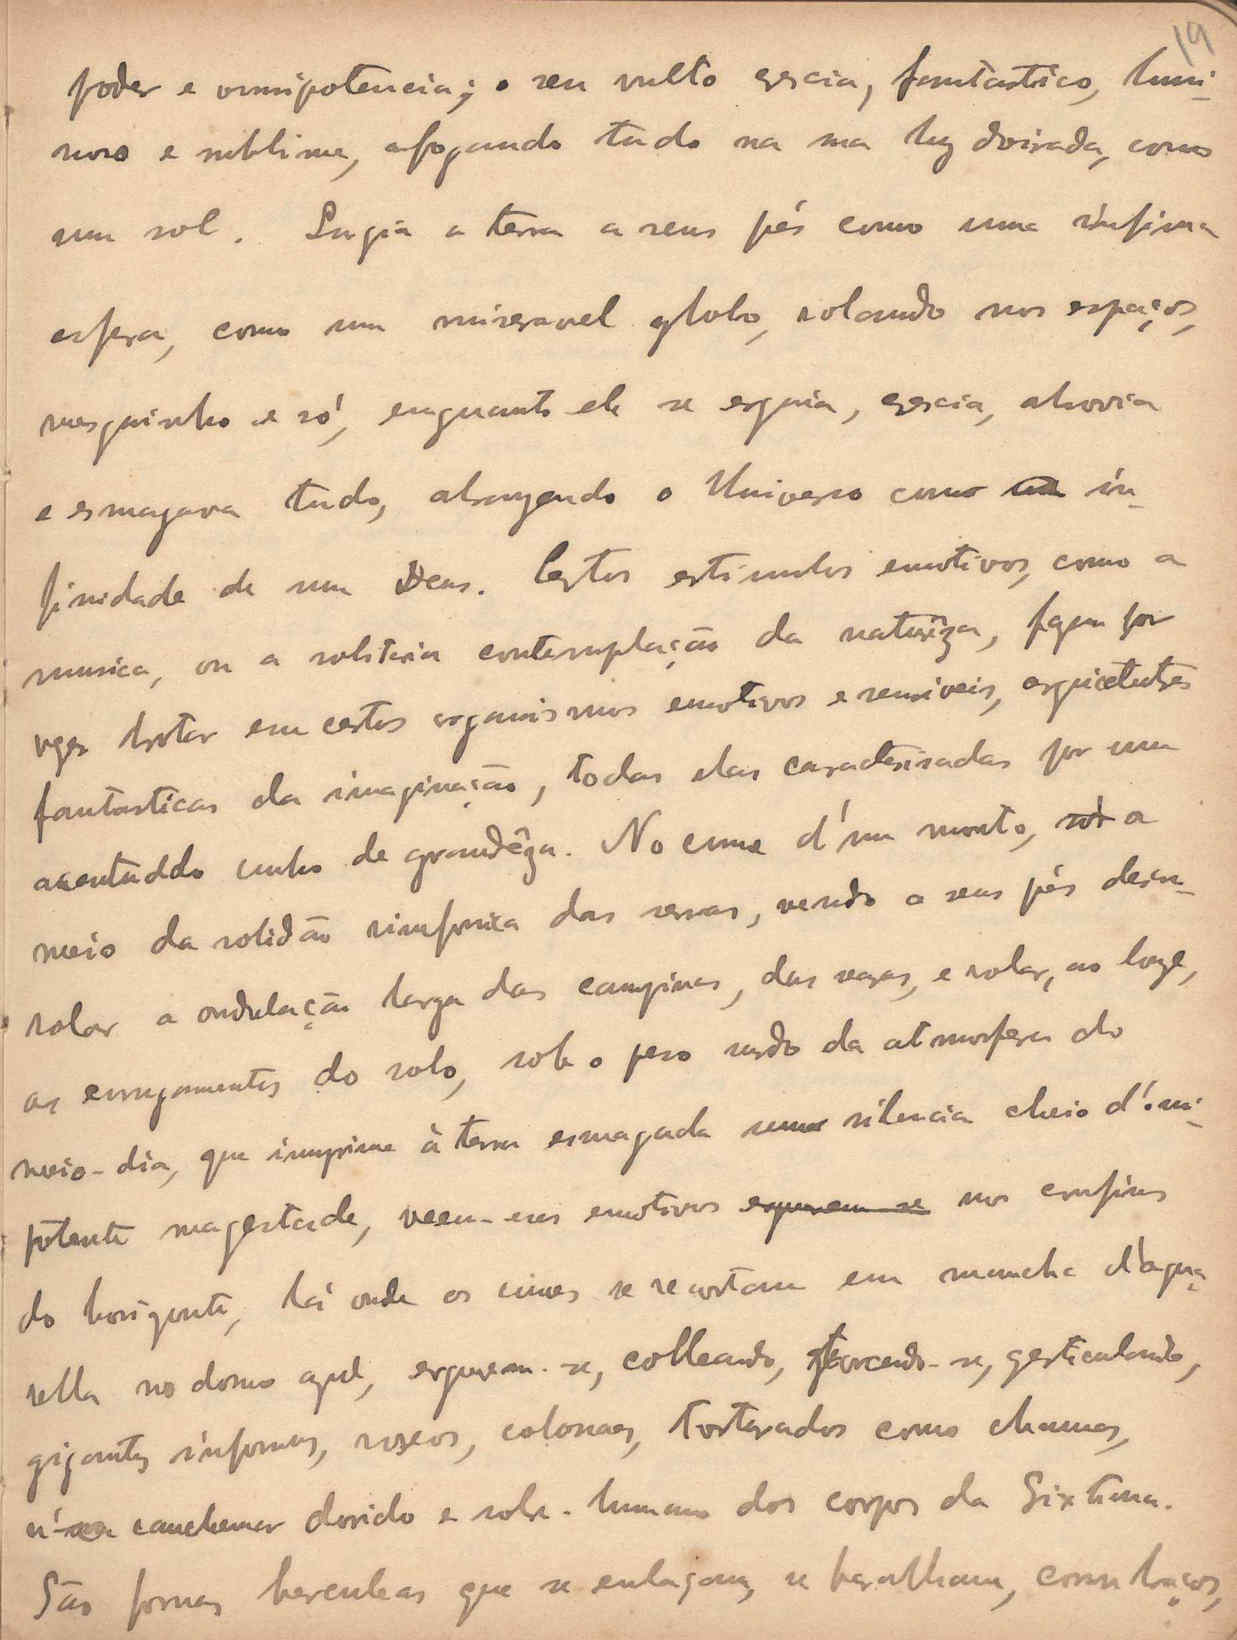 19
poder e omnipotencia; o seu vulto crescia, fantastico, lumi-
noso e sublime, afogando tudo na sua luz doirada, como
um sol. Surgia a terra a seus pés como uma infima
esfera, como um miseravel globo, rolando nos espaços,
mesquinho e só, enquanto ele se erguia, crescia, absorvia
e esmagava tudo, abrangendo o Universo como in-
finidade de um Deus. Certos estimulos emotivos, como a
musica, ou a solitaria contemplação da naturêza, fazem por
vezes brotar em certos organismos emotivos e sensiveis, arquitetures
fantasticas da imaginação, todas elas caracterisadas por um
acentuddo cunho de grandêza. No cume d'um monte, a
meio da solidão sinfonica das serras, vendo a seus pés desen-
rolar a ondulação larga das campinas, das varzas, e rolar, ao longe,
as enrugamentos do solo, sob o peso surdo da atmosfera do
meio-dia, que imprime à terra esmagada um silencio cheio d'omni-
potente magestade, veem-nos emotivos erguerem-se nos confins
do horizonte, lá onde os cumes se recortam em mancha d'agua-
rella no domo azul, erguerem-se, colleando, torcendo-se, gesticulando,
gigantes informes, roxeos, colossaes, torturados como chamas,
n'um cauchemar dorido e sobre-humano dos corpos da Sixtina.
São formas herculeas que se enlaçam, se baralham, com braços,